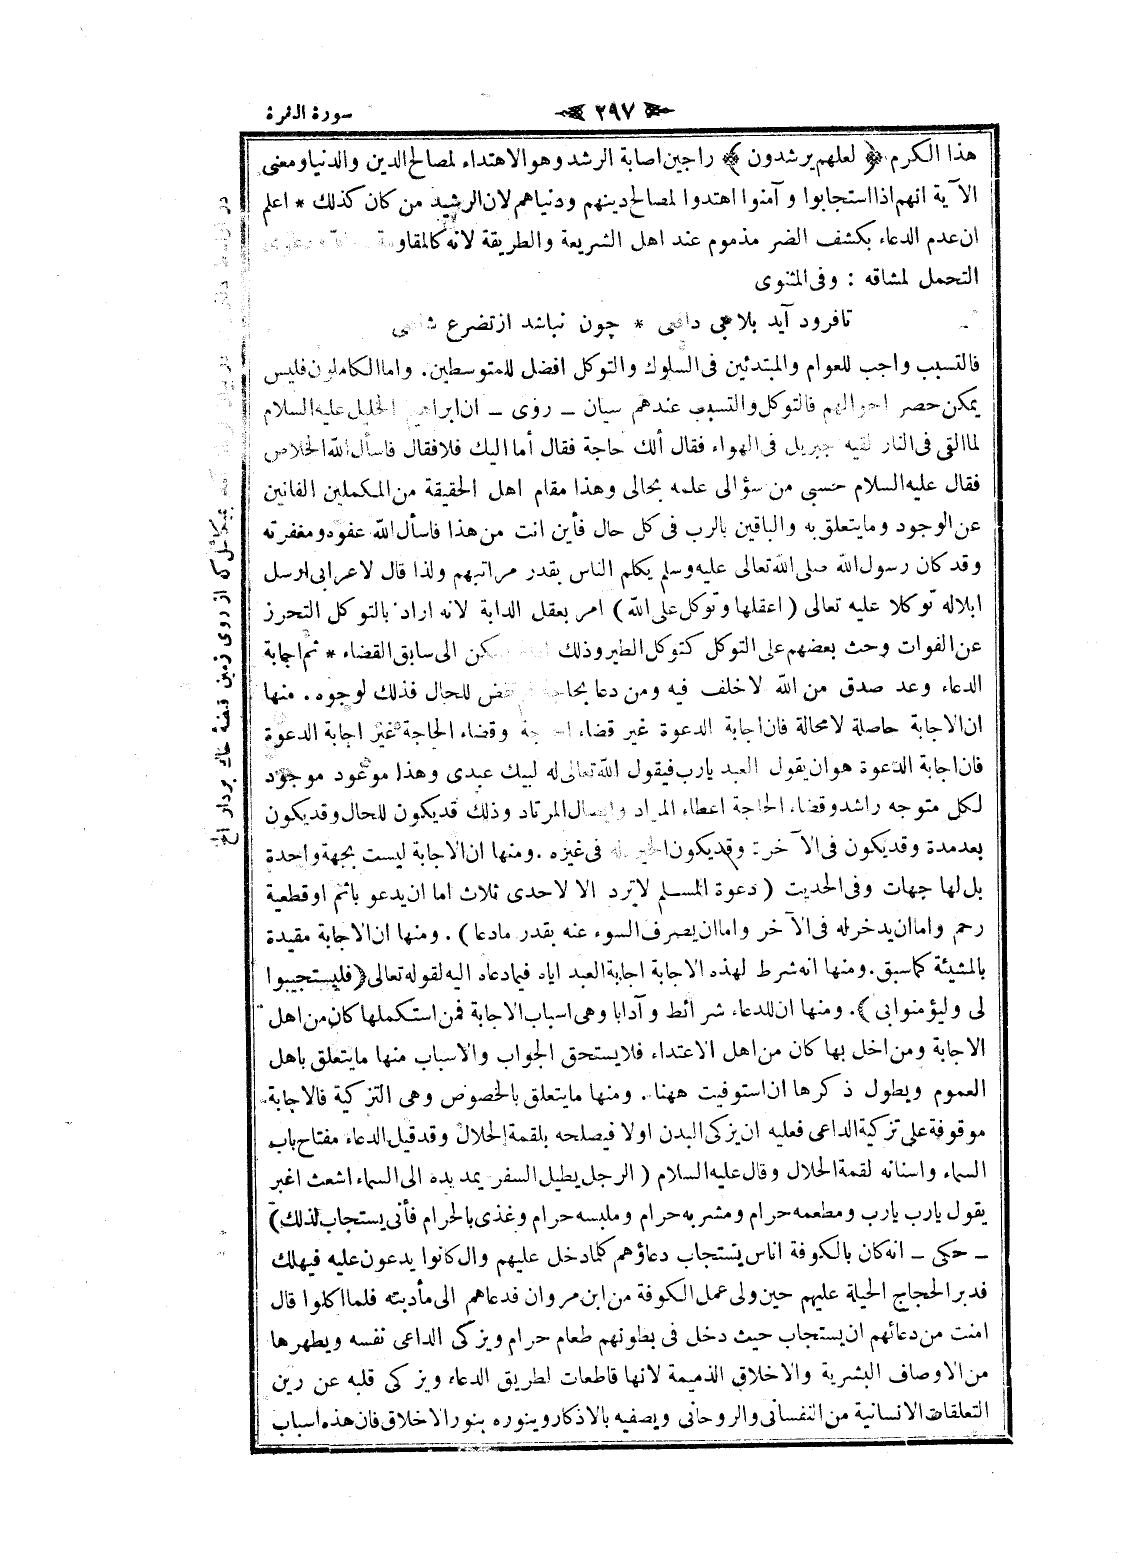 سورة البقرة
﴿ ٢٩٧ ﴾
هذا الكرم ﴿ لعلهم يرشدون ﴾ راجين اصابة الرشد وهو الاهتداء لمصالح الدين والدنيا ومعنى
الآية انهم اذا استجابوا وآمنوا اهتدوا لمصالح دينهم ودنياهم لان الرشيد من كان كذلك * اعلم
ان عدم الدعاء بكشف الضر مذموم عند اهل الشريعة والطريقة لانه كالمقاومة
التحمل لمشاقه : وفى المثنوى
تافرود آيد بلا بى دافعى * چون نباشد از تضرع شافعى
فالتسبب واجب للعوام والمبتدئين فى السلوك والتوكل افضل للمتوسطين. واما الكاملون فليس
يمكن حصر احوالهم فالتوكل والتسبب عندهم سيان ــ روى ــ ان ابراهيم الخليل عليه السلام
لما القى فى النار لقيه جبريل فى الهواء فقال ألك حاجة فقال أما اليك فلا فقال فاسأل الله الخلاص
فقال عليه السلام حسبى من سؤالى علمه بحالى وهذا مقام اهل الحقيقة من المكملين الفانين
عن الوجود وما يتعلق به والباقين بالرب فى كل حال فأين انت من هذا فاسأل الله عفوه ومغفرته
وقد كان رسول الله صلى الله تعالى عليه وسلم يكلم الناس بقدر مراتبهم ولذا قال لاعرابى ارسل
ابلاله توكلا عليه تعالى ( اعقلها وتوكل على الله ) امر بعقل الدابة لانه اراد بالتوكل التحرز
عن الفوات وحث بعضهم على التوكل كتوكل الطير وذلك الى سابق القضاء * ثم اجابة
الدعاء وعد صدق من الله لا خلف فيه ومن دعا بحاجة للحال فذلك لوجوه. منها
ان الاجابة حاصلة لا محالة فان اجابة الدعوة غير قضاء الحاجة وقضاء الحاجة غير اجابة الدعوة
فان اجابة الدعوة هو ان يقول العبد يارب فيقول الله تعالى له لبيك عبدى وهذا موعود موجود
لكل متوجه راشد وقضاء الحاجة اعطاء المراد وايصال المرتاد وذلك قد يكون للحال وقد يكون
بعد مدة وقد يكون فى الآخرة وقد يكون الخيرله فى غيره. ومنها ان الاجابة ليست بجهة واحدة
بل لها جهات وفى الحديث ( دعوة المسلم لا ترد الا لاحدى ثلاث اما ان يدعو باثم او قطعية
رحم واما ان يدخر له فى الآخر واما ان يصرف السوء عنه بقدر ما دعا ). ومنها ان الاجابة مقيدة
بالمشيئة كما سبق. ومنها انه شرط لهذه الاجابة اجابة العبد اياه فيما دعاه اليه لقوله تعالى ( فليستجيبوا
لى وليؤمنوا بى ). ومنها ان للدعاء شرائط وآدابا وهى اسباب الاجابة فمن استكملها كان من اهل
الاجابة ومن اخل بها كان من اهل الاعتداء فلا يستحق الجواب والاسباب منها ما يتعلق باهل
العموم ويطول ذكرها ان استوفيت ههنا. ومنها ما يتعلق بالخصوص وهى التزكية فالاجابة
موقوفة على تزكية الداعى فعليه ان يزكى البدن اولا فيصلحه بلقمة الحلال وقد قيل الدعاء مفتاح باب
السماء واسنانه لقمة الحلال وقال عليه السلام ( الرجل يطيل السفر يمد يده الى السماء اشعث اغبر
يقول يارب يارب ومطعمه حرام ومشربه حرام وملبسه حرام وغذى بالحرام فأنى يستجاب لذلك)
ــ حكى ــ انه كان بالكوفة اناس يستجاب دعاؤهم كلما دخل عليهم وال كانوا يدعون عليه فيهلك
فدبر الحجاج الحيلة عليهم حين ولى عمل الكوفة من ابن مروان فدعاهم الى مأدبته فلما اكلوا قال
امنت من دعائهم ان يستجاب حيث دخل فى بطونهم طعام حرام ويزكى الداعى نفسه ويطهرها
من الاوصاف البشرية والاخلاق الذميمة لانها قاطعات لطريق الدعاء ويزكى قلبه عن رين
التعلقات الانسانية من النفسانى والروحانى ويصفيه بالاذكار وينوره بنور الاخلاق فان هذه اسباب
ميكائيل كه از روى زمين قبضهٔ خاك بردار الخ